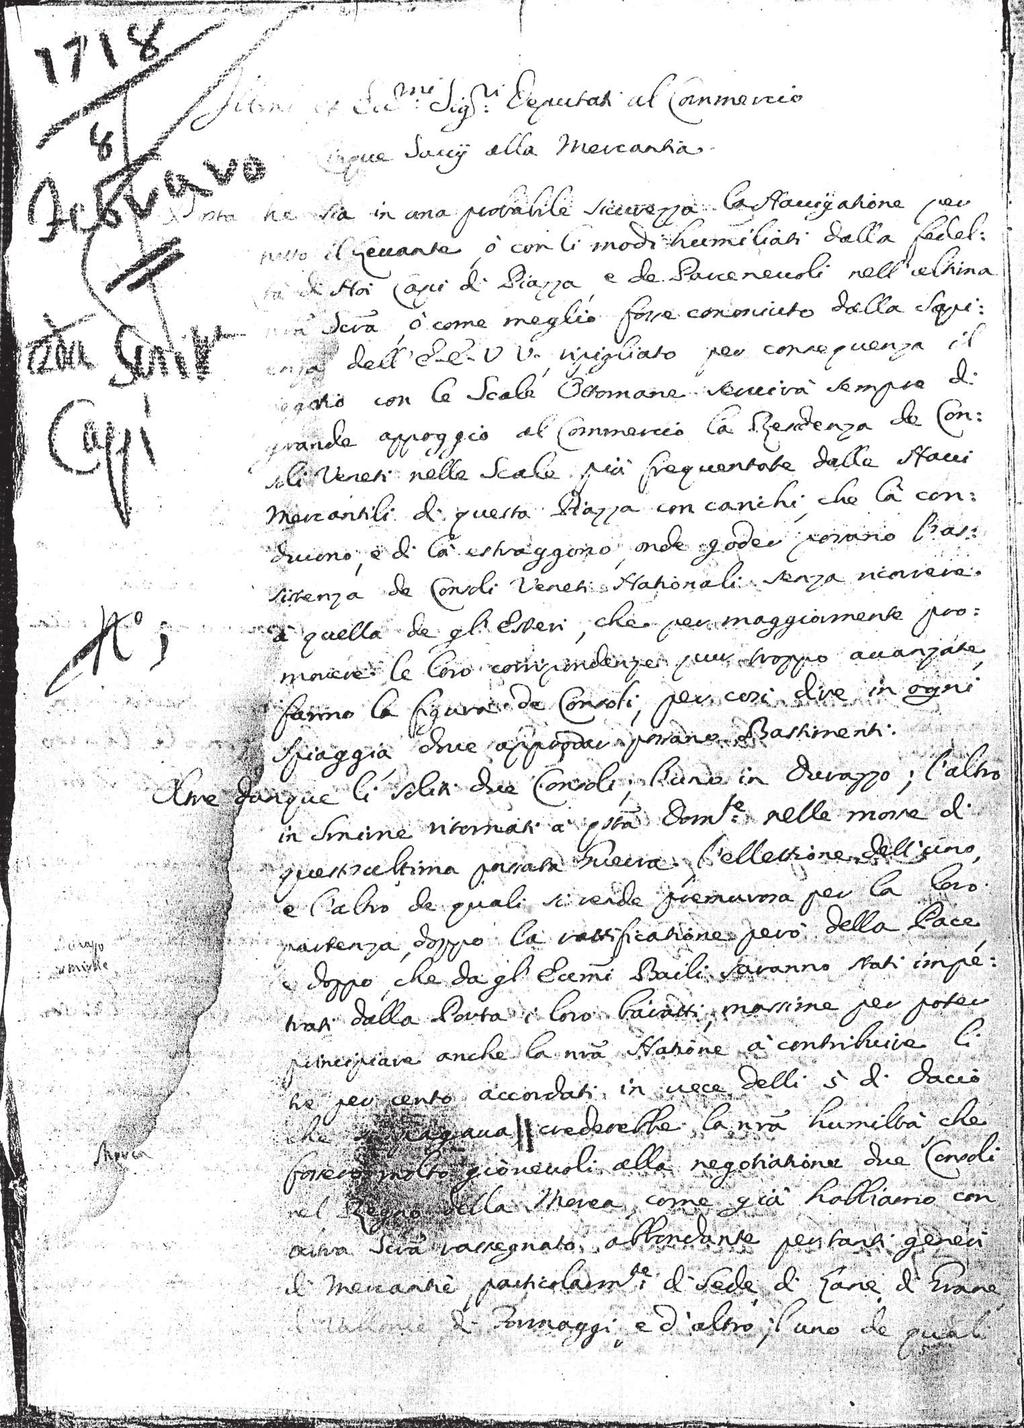 1718
8
Febraro
Scritt
Capi
N° 1
et Ecc.mi Sig.ri Deputati al Commercio
Cinque Savij alla Mercantia.
che sia in una probabile sicurezza la Navigatione per
tutto il Levante, ò con li modi humiliati dalla fedel:
tà di Noi Capi di Piazza, e de Parcenevoli nell'ultima
nrã Scrã, ò come meglio fosse conosciuto dalla Sapi:
enza dell'E.E. V.V. ripigliato per consequenza il
negotio con le Scale Ottomane servirà sempre di
grande appoggio al Commercio la Residenza de Con:
soli Veneti nelle Scale più frequentate dalle Navi
Mercantili di questa Piazza con carichi, che là con:
ducono, e di là estraggono, onde goder possano l'as:
sistenza de Consoli Veneti Nationali senza ricorrere
à quella de gl'Esteri, che per maggiormente pro:
movere le loro corrispondenze pur troppo avanzate,
fanno la figura de Consoli, per così dire in ogni
spiaggia dove approdar possano Bastimenti.
Oltre dunque li soliti due Consoli, l'uno in Durazzo, l'altro
in Smirne ritornati à qstã Domte. nelle mosse di
quest'ultima passata Guerra, l'ellettione dell'uno,
e l'altro de quali si rende premurosa per la loro
partenza, doppo la rattificatione però della Pace,
e doppo, che da gl'Eccmi Baili saranno stati impe:
trati dalla Porta i loro baratti, massime per poter
principiare anche la nrã Natione à contribuire li
tre per cento accordati in vece delli 5 di Dacio
che si pagava || crederebbe la nrã humiltà che
fossero molto giovevoli alla negotiatione due Consoli
nel Regno della Morea, come già habbiamo con
altra Scrã rassegnato, abbondante per tanti generi
di Mercantie, particolarmte. di Sede, di Lane, di Grane,
di Vallonie, di Formaggi, e d'altro, l'uno de quali
Durazo
Smirne
Morea